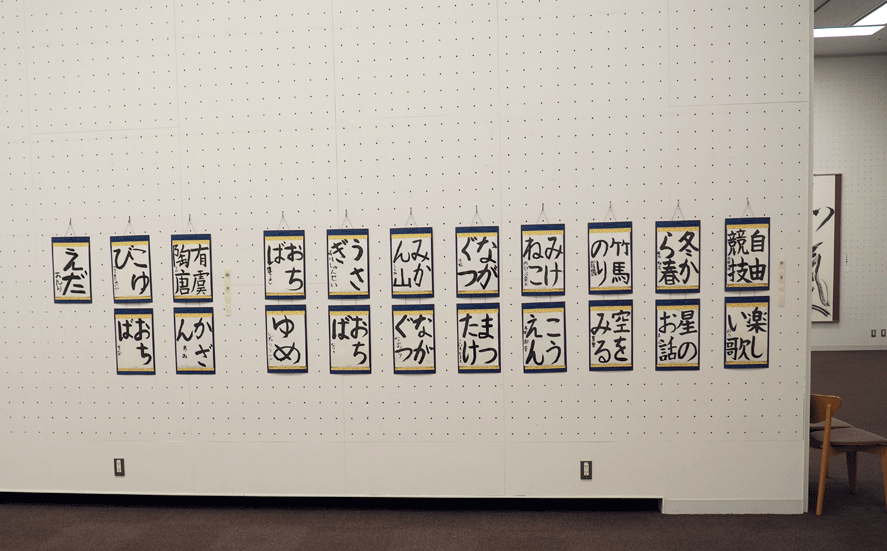 自由
競技
楽し
い歌
冬か
ら春
星の
お話
竹馬
のり
空を
みる
みけ
ねこ
こう
えん
なが
ぐつ
まつ
たけ
みか
ん山
なが
ぐつ
うさ
ぎ
おち
ば
おち
ば
ゆめ
有虞
陶唐
かざ
ん
こゆ
び
おち
ば
えだ